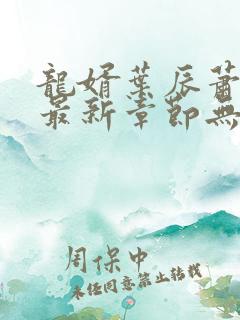 龍婿葉辰蕭
最新章節無
周保中
未經同意禁止轉載